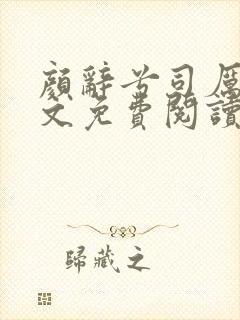 顏辭兮司厲
文免費閱讀
歸藏之